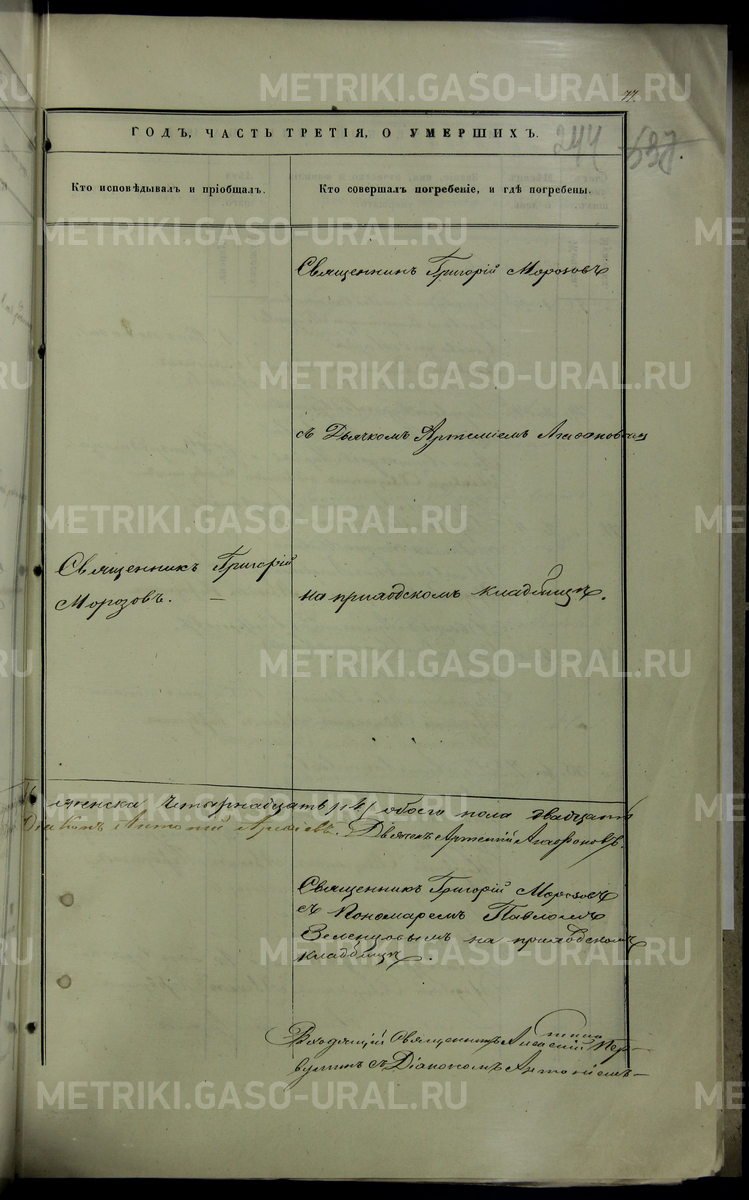 METRIKI.GASO-URAL.RU
77.
ГОДЪ, ЧАСТЬ ТРЕТІЯ, О УМЕРШИХЪ.
244 537
Кто исповѣдывалъ и пріобщалъ.
Кто совершалъ погребеніе, и гдѣ погребены.
METRIKI.GASO-URAL.RU
Священникъ Григорій Морозовъ
METRIKI.GASO-URAL.RU
съ Дьячкомъ Артеміемъ Агафоновымъ
METRIKI.GASO-URAL.RU
Священникъ Григорій
Морозовъ. —
на приходскомъ кладбищѣ.
METRIKI.GASO-URAL.RU
женска четырнадцать /14/ обоего пола двадцать
Діаконъ Антоній Дьячекъ Артемій Агафоновъ.
METRIKI.GASO-URAL.RU
Священникъ Григорій Морозовъ
съ Пономаремъ Павломъ
Зеленцовымъ на приходскомъ
кладбищѣ.
METRIKI.GASO-URAL.RU
Священникъ
съ Діакономъ Антоніемъ
METRIKI.GASO-URAL.RU